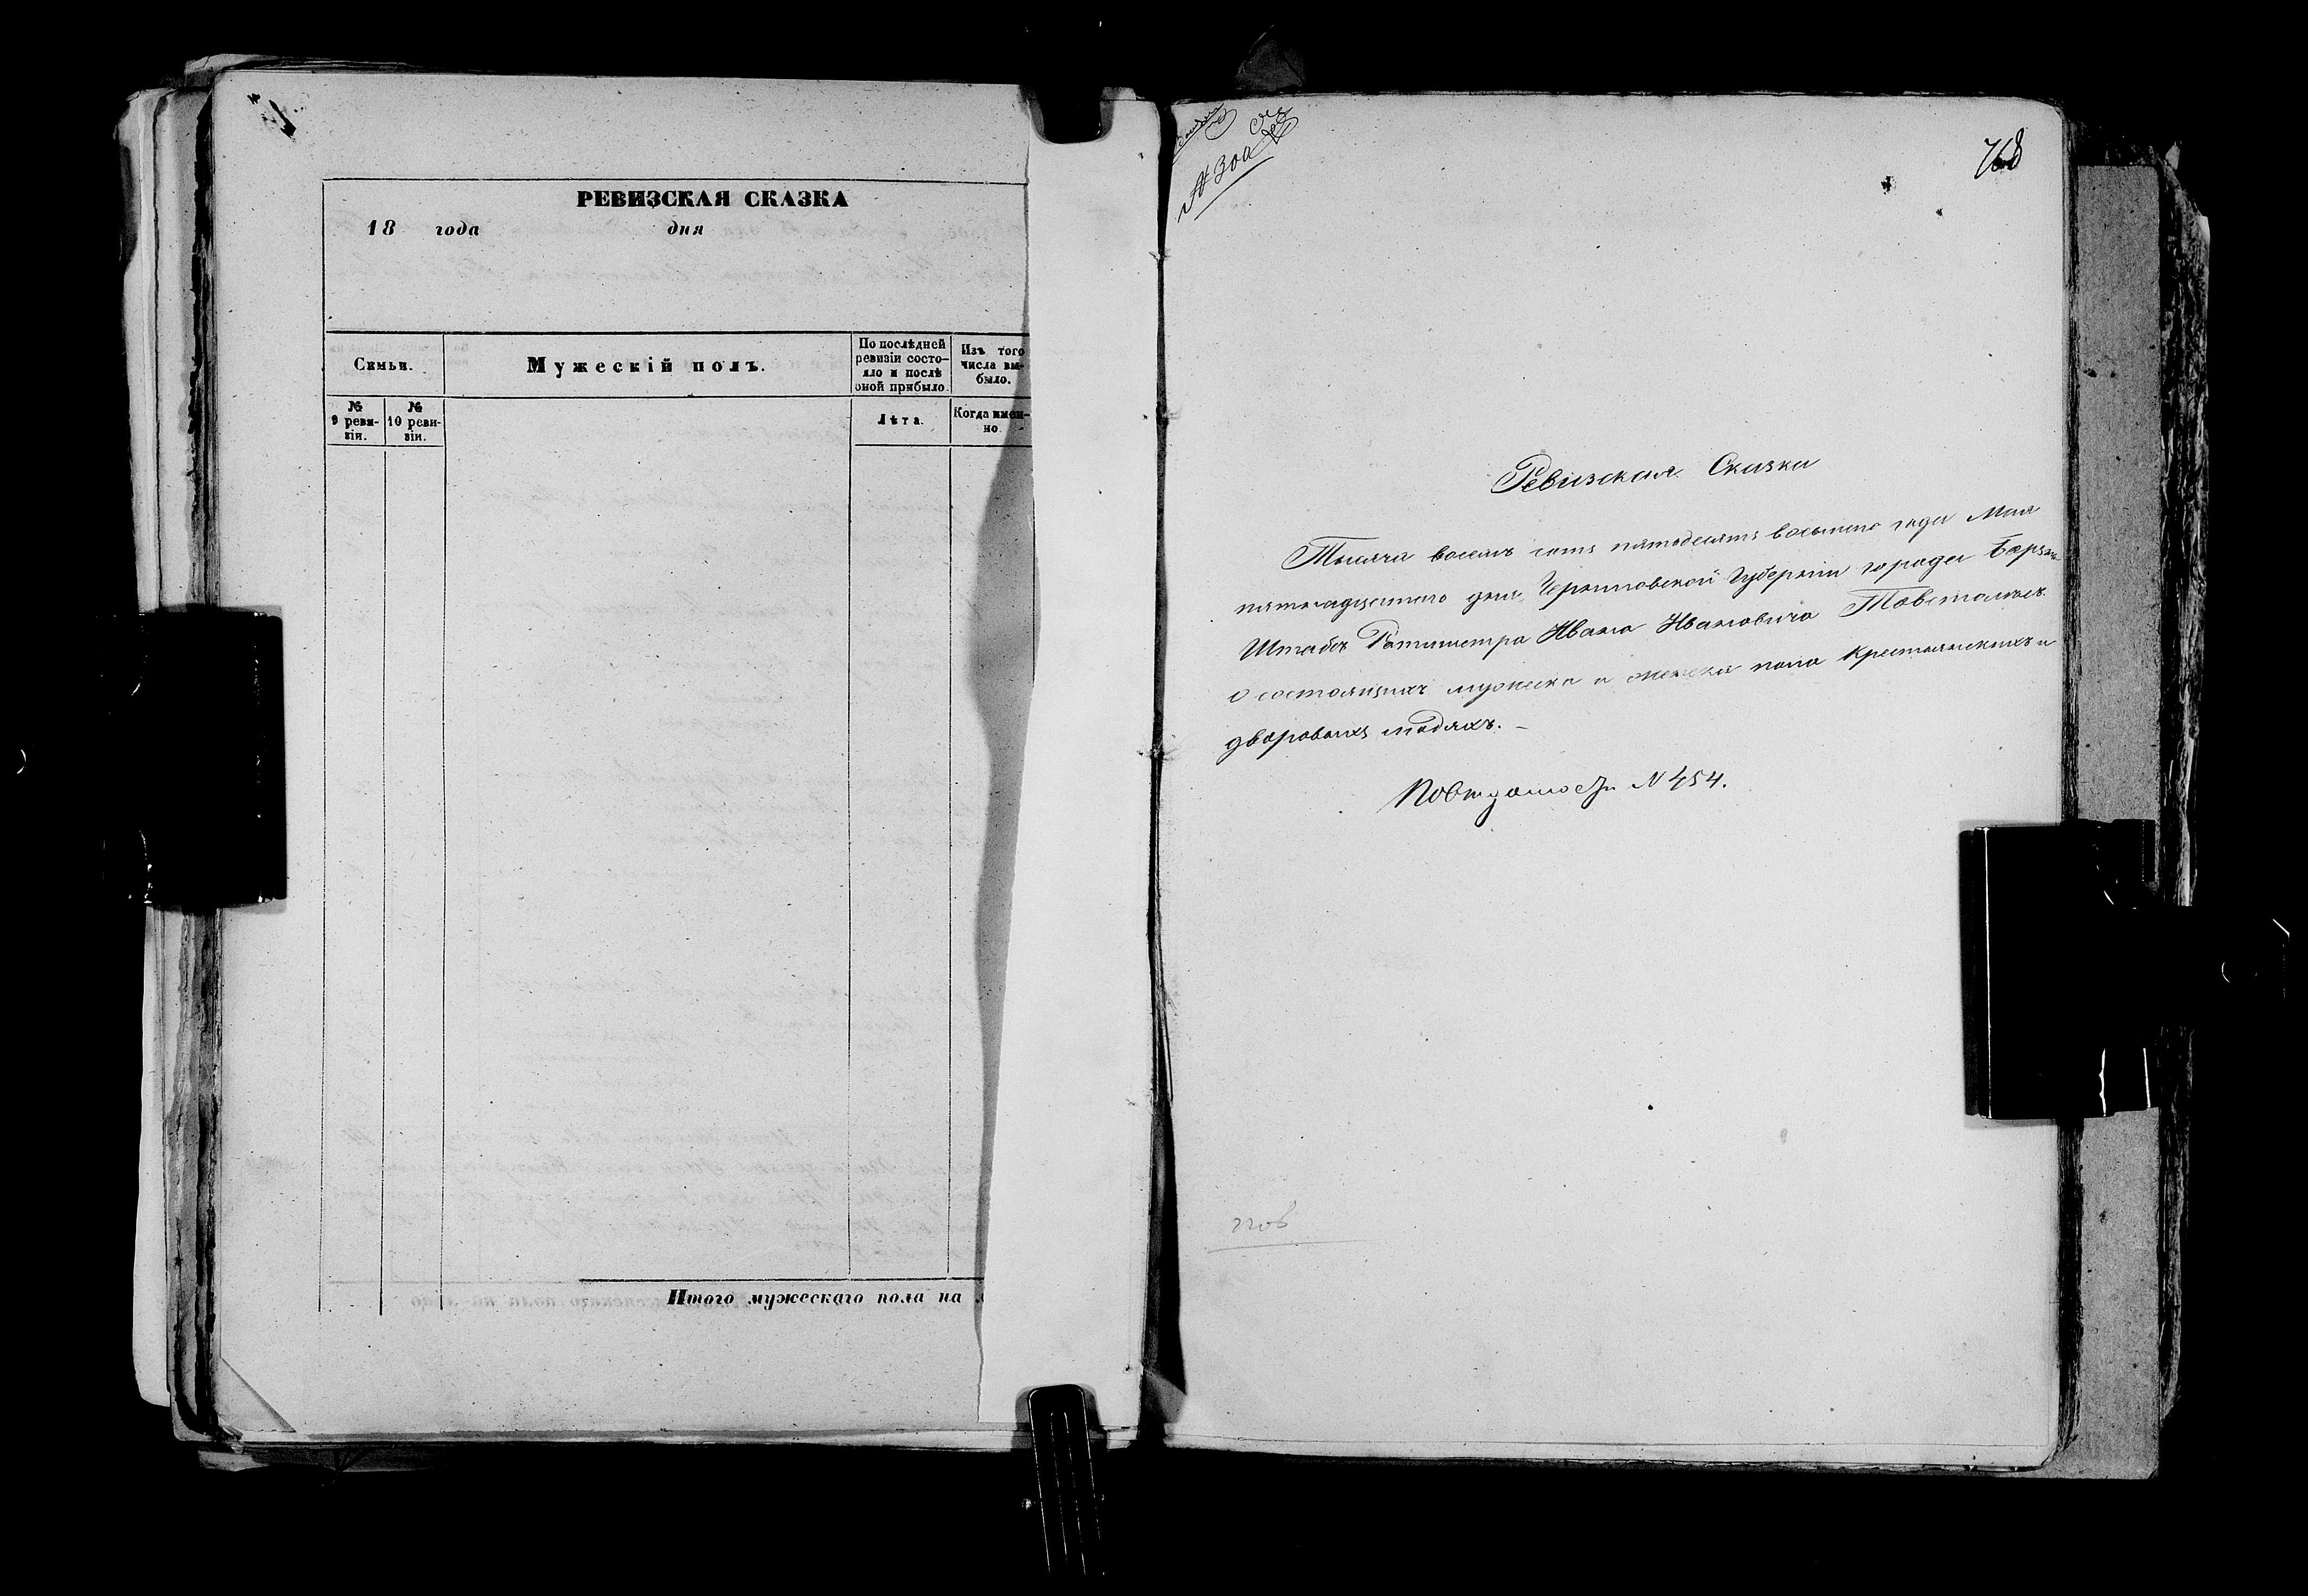 РЕВИЗСКАЯ СКАЗКА
18 года дня
Семьи.
Мужескій полъ.
По послѣдней
ревизіи состо-
яло и послѣ
оной прибыло.
Изъ того
числа вы-
было.
№
9 реви-
зіи.
№
10 реви-
зіи.
Лѣта.
Когда имен-
но.
Итого мужескаго пола на
№ 300
768
Ревизская Сказка
Тысяча восемь сотъ пятьдесятъ восьмого года Мая
пятнадцатого дня, Черниговской Губерніи города Борзны
Штабъ Ротмистра Ивана Ивановича
о состоящихъ мужеска и женска пола крестьянскихъ и
дворовыхъ людяхъ. –
По № 454.